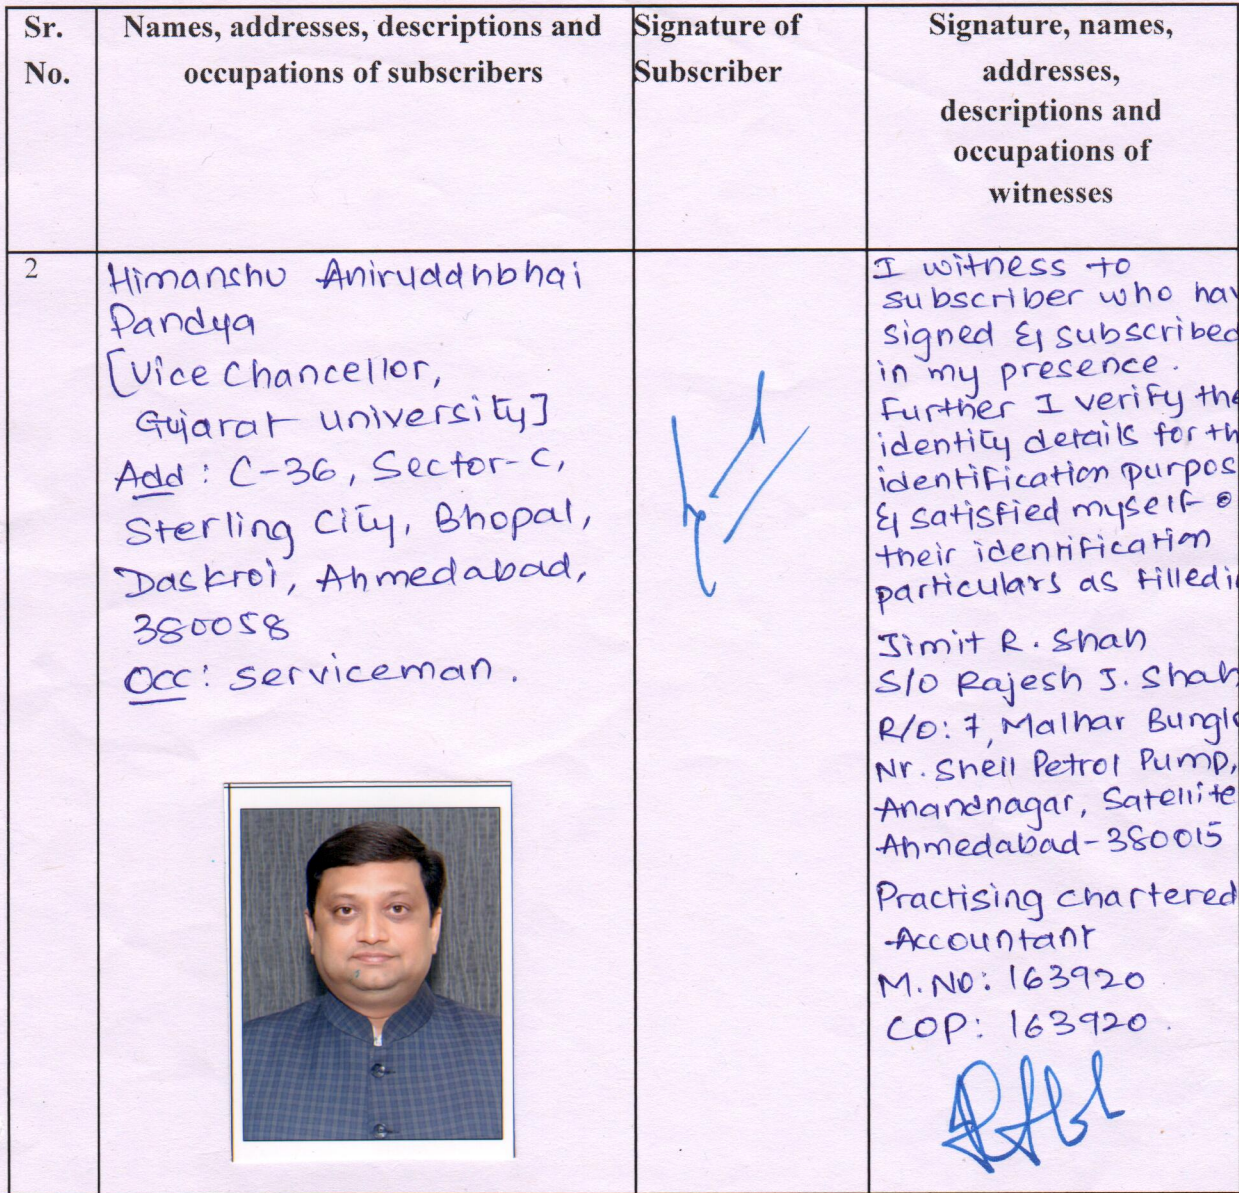 Sr.
No.
Names, addresses, descriptions and
occupations of subscribers
Signature of
Subscriber
Signature, names,
addresses,
descriptions and
occupations of
witnesses
2
Himanshu Aniruddhbhai
Pandya
[Vice Chancellor,
Gujarat University]
Add: C-36, Sector-C,
Sterling City, Bhopal,
Daskroi, Ahmedabad,
380058
Occ: serviceman.
I witness to
subscriber who hav
signed & subscribed
in my presence.
Further I verify the
identity details for th
identification purpos
& satisfied myself o
their identification
particulars as filled i
Jimit R. Shah
S/O Rajesh J. Shah
R/O: 7, Malhar Bunglo
Nr. Shell Petrol Pump,
Anandnagar, Satellite
Ahmedabad-380015
Practising Chartered
Accountant
M. NO: 163920
COP: 163920.